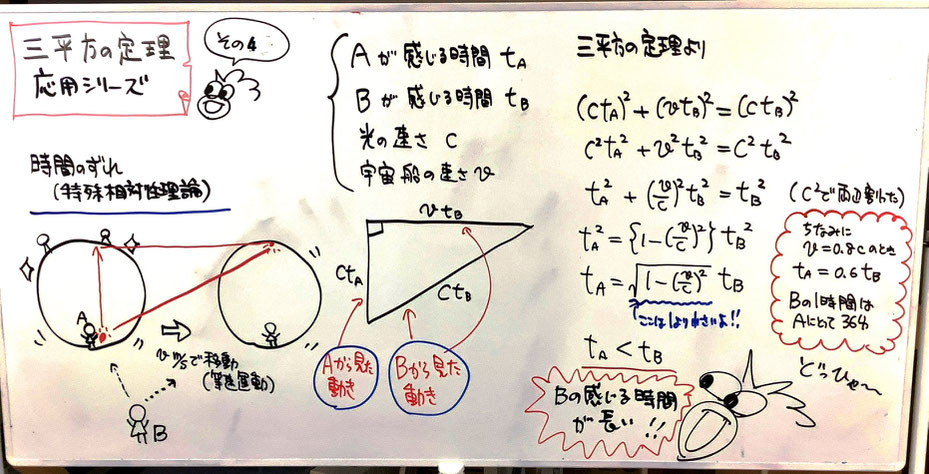 三平方の定理
応用シリーズ
その4
時間のずれ
(特殊相対性理論)
A
v m/sで移動
(等速運動)
B
Aが感じる時間 tA
Bが感じる時間 tB
光の速さ c
宇宙船の速さ v
v tB
ctA
ctB
Aから見た
動き
Bから見た
動き
三平方の定理より
(ctA)²+(vtB)²=(ctB)²
c²tA²+v²tB²=c²tB²
tA²+(v/c)²tB²=tB²
(c²で両辺割った)
tA²={1-(v/c)²}tB²
tA=√1-(v/c)² tB
ここは1より小さいよ!!
tA<tB
Bの感じる時間
が長い!!
ちなみに
v=0.8cのとき
tA=0.6tB
Bの1時間は
Aにとって36分
どっひゃ〜